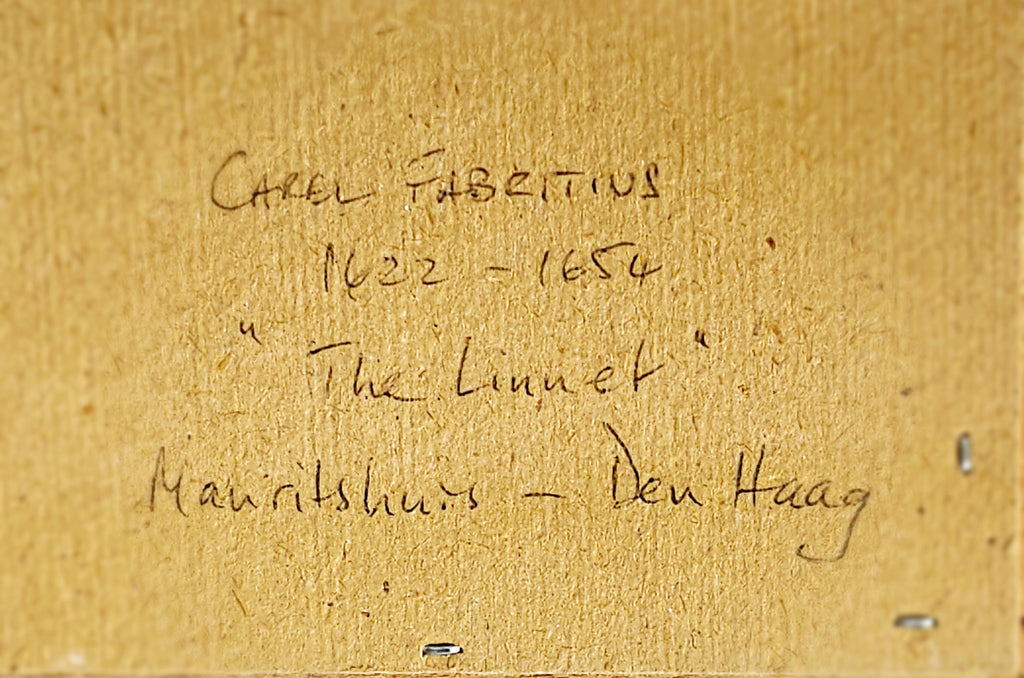 CAREL FABRITIUS
1622 - 1654
"The Linnet"
Mauritshuis - Den Haag